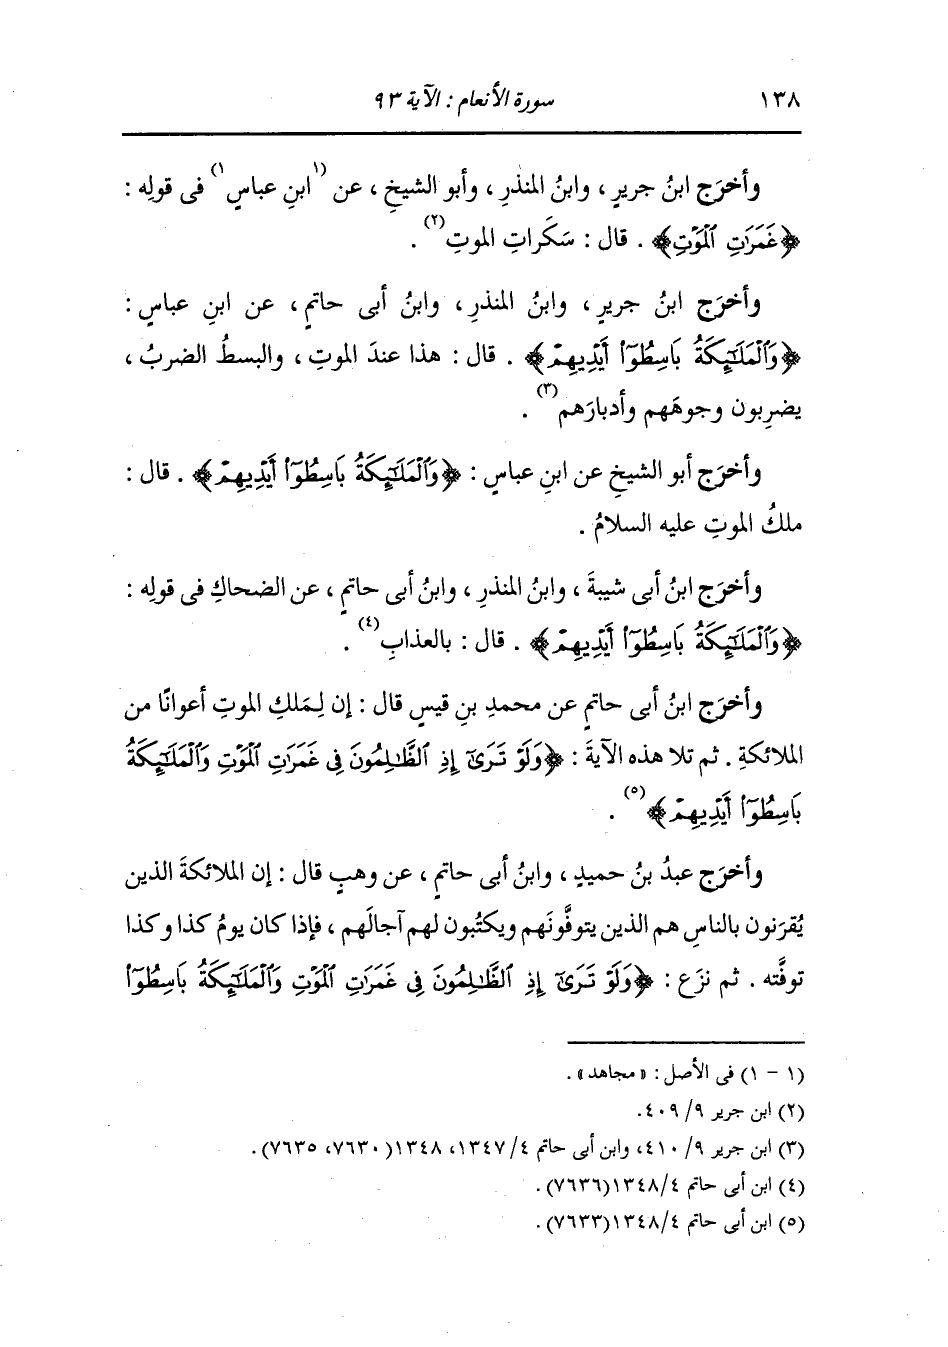 ١٣٨ سورة الأنعام : الآية ٩٣
وأخرَج ابنُ جريرٍ ، وابنُ المنذرِ ، وأبو الشيخِ ، عن (١ابنِ عباسٍ١) فى قولِه :
﴿غَمَرَٰتِ ٱلْمَوْتِ﴾ . قال : سَكَراتِ الموتِ(٢) .
وأخرَج ابنُ جريرٍ ، وابنُ المنذرِ ، وابنُ أبى حاتمٍ ، عن ابنِ عباسٍ :
﴿وَٱلْمَلَٰٓئِكَةُ بَاسِطُوٓا۟ أَيْدِيهِمْ﴾ . قال : هذا عندَ الموتِ ، والبسطُ الضربُ ،
يضرِبون وجوهَهم وأدبارَهم(٣) .
وأخرَج أبو الشيخِ عن ابنِ عباسٍ : ﴿وَٱلْمَلَٰٓئِكَةُ بَاسِطُوٓا۟ أَيْدِيهِمْ﴾ . قال :
ملكُ الموتِ عليه السلامُ .
وأخرَج ابنُ أبى شيبةَ ، وابنُ المنذرِ ، وابنُ أبى حاتمٍ ، عن الضحاكِ فى قولِه :
﴿وَٱلْمَلَٰٓئِكَةُ بَاسِطُوٓا۟ أَيْدِيهِمْ﴾ . قال : بالعذابِ(٤) .
وأخرَج ابنُ أبى حاتمٍ عن محمدِ بنِ قيسٍ قال : إن لِمَلكِ الموتِ أعوانًا من
الملائكةِ . ثم تلا هذه الآيةَ : ﴿وَلَوْ تَرَىٰٓ إِذِ ٱلظَّٰلِمُونَ فِى غَمَرَٰتِ ٱلْمَوْتِ وَٱلْمَلَٰٓئِكَةُ
بَاسِطُوٓا۟ أَيْدِيهِمْ﴾(٥) .
وأخرَج عبدُ بنُ حميدٍ ، وابنُ أبى حاتمٍ ، عن وهبٍ قال : إن الملائكةَ الذين
يُقرَنون بالناسِ هم الذين يتوفَّونَهم ويكتُبون لهم آجالَهم ، فإذا كان يومُ كذا وكذا
توفَّته . ثم نزَع : ﴿وَلَوْ تَرَىٰٓ إِذِ ٱلظَّٰلِمُونَ فِى غَمَرَٰتِ ٱلْمَوْتِ وَٱلْمَلَٰٓئِكَةُ بَاسِطُوٓا۟
(١ - ١) فى الأصل : « مجاهد » .
(٢) ابن جرير ٩/ ٤٠٩.
(٣) ابن جرير ٩/ ٤١٠، وابن أبى حاتم ٤/ ١٣٤٧، ١٣٤٨(٧٦٣٠، ٧٦٣٥).
(٤) ابن أبى حاتم ٤/ ١٣٤٨(٧٦٣٦).
(٥) ابن أبى حاتم ٤/ ١٣٤٨(٧٦٣٣).